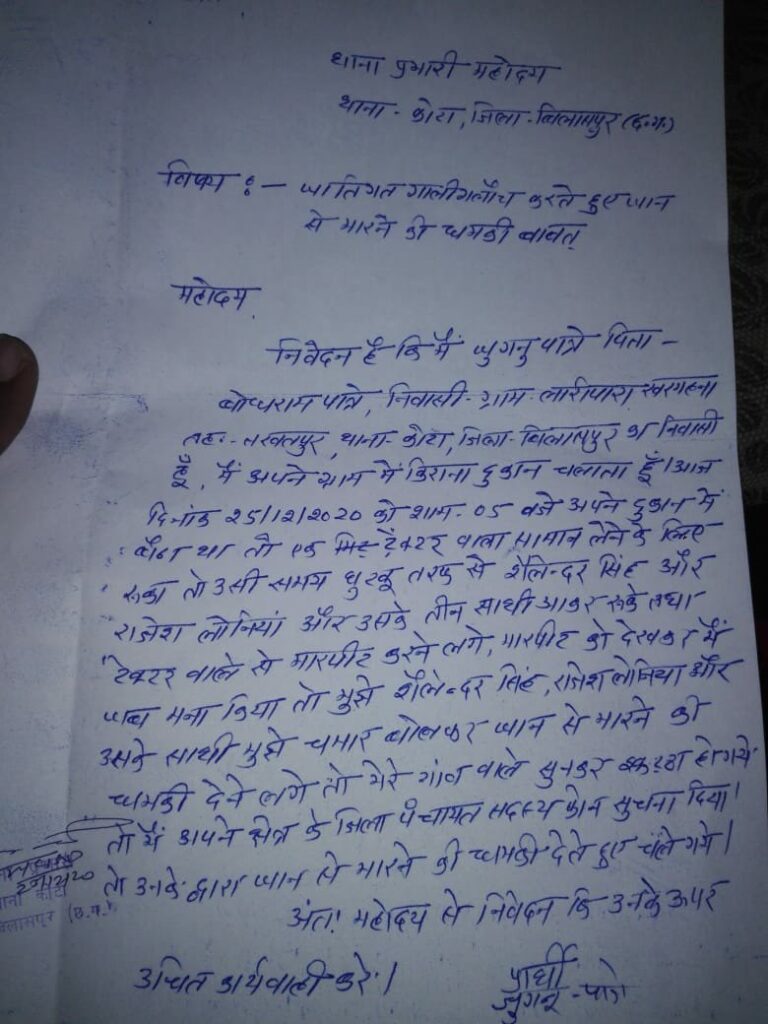 थाना प्रभारी महोदय
थाना - कोटा, जिला - बिलासपुर (छ.ग.)
विषय :- जातिगत गालीगलौच करते हुए जान
से मारने की धमकी बावत्
महोदय,
निवेदन है कि मैं जुगनु पात्रे पिता -
बोधराम पात्रे, निवासी - ग्राम - लारीपारा, खरगहना
तह. - तखतपुर, थाना - कोटा, जिला - बिलासपुर का निवासी
हूँ, मैं अपने ग्राम में किराना दुकान चलाता हूँ। आज
दिनांक 25/12/2020 को शाम - 05 बजे अपने दुकान में
बैठा था तो एक टेक्टर वाला सामान लेने के लिए
रूका तो उसी समय तरफ से शैलेन्दर सिंह और
राजेश लोनिया और उसके तीन साथी आकर रूके तथा
टेक्टर वाले से मारपीट करने लगे, मारपीट को देखकर मैं
जब मना किया तो मुझे शैलेन्दर सिंह, राजेश लोनिया और
उसके साथी मुझे चमार बोलकर जान से मारने की
धमकी देने लगे तो मेरे गांव वाले सुनकर इकट्ठा हो गये
तो मैं अपने क्षेत्र के जिला पंचायत सदस्य को सुचना दिया।
तो उनके द्वारा जान से मारने की धमकी देते हुए चले गये।
अंत! महोदय से निवेदन कि उनके ऊपर
उचित कार्यवाली करें।
प्रार्थी
जुगनू - पात्रे
25/12/20
थाना कोटा
बिलासपुर (छ.ग.)